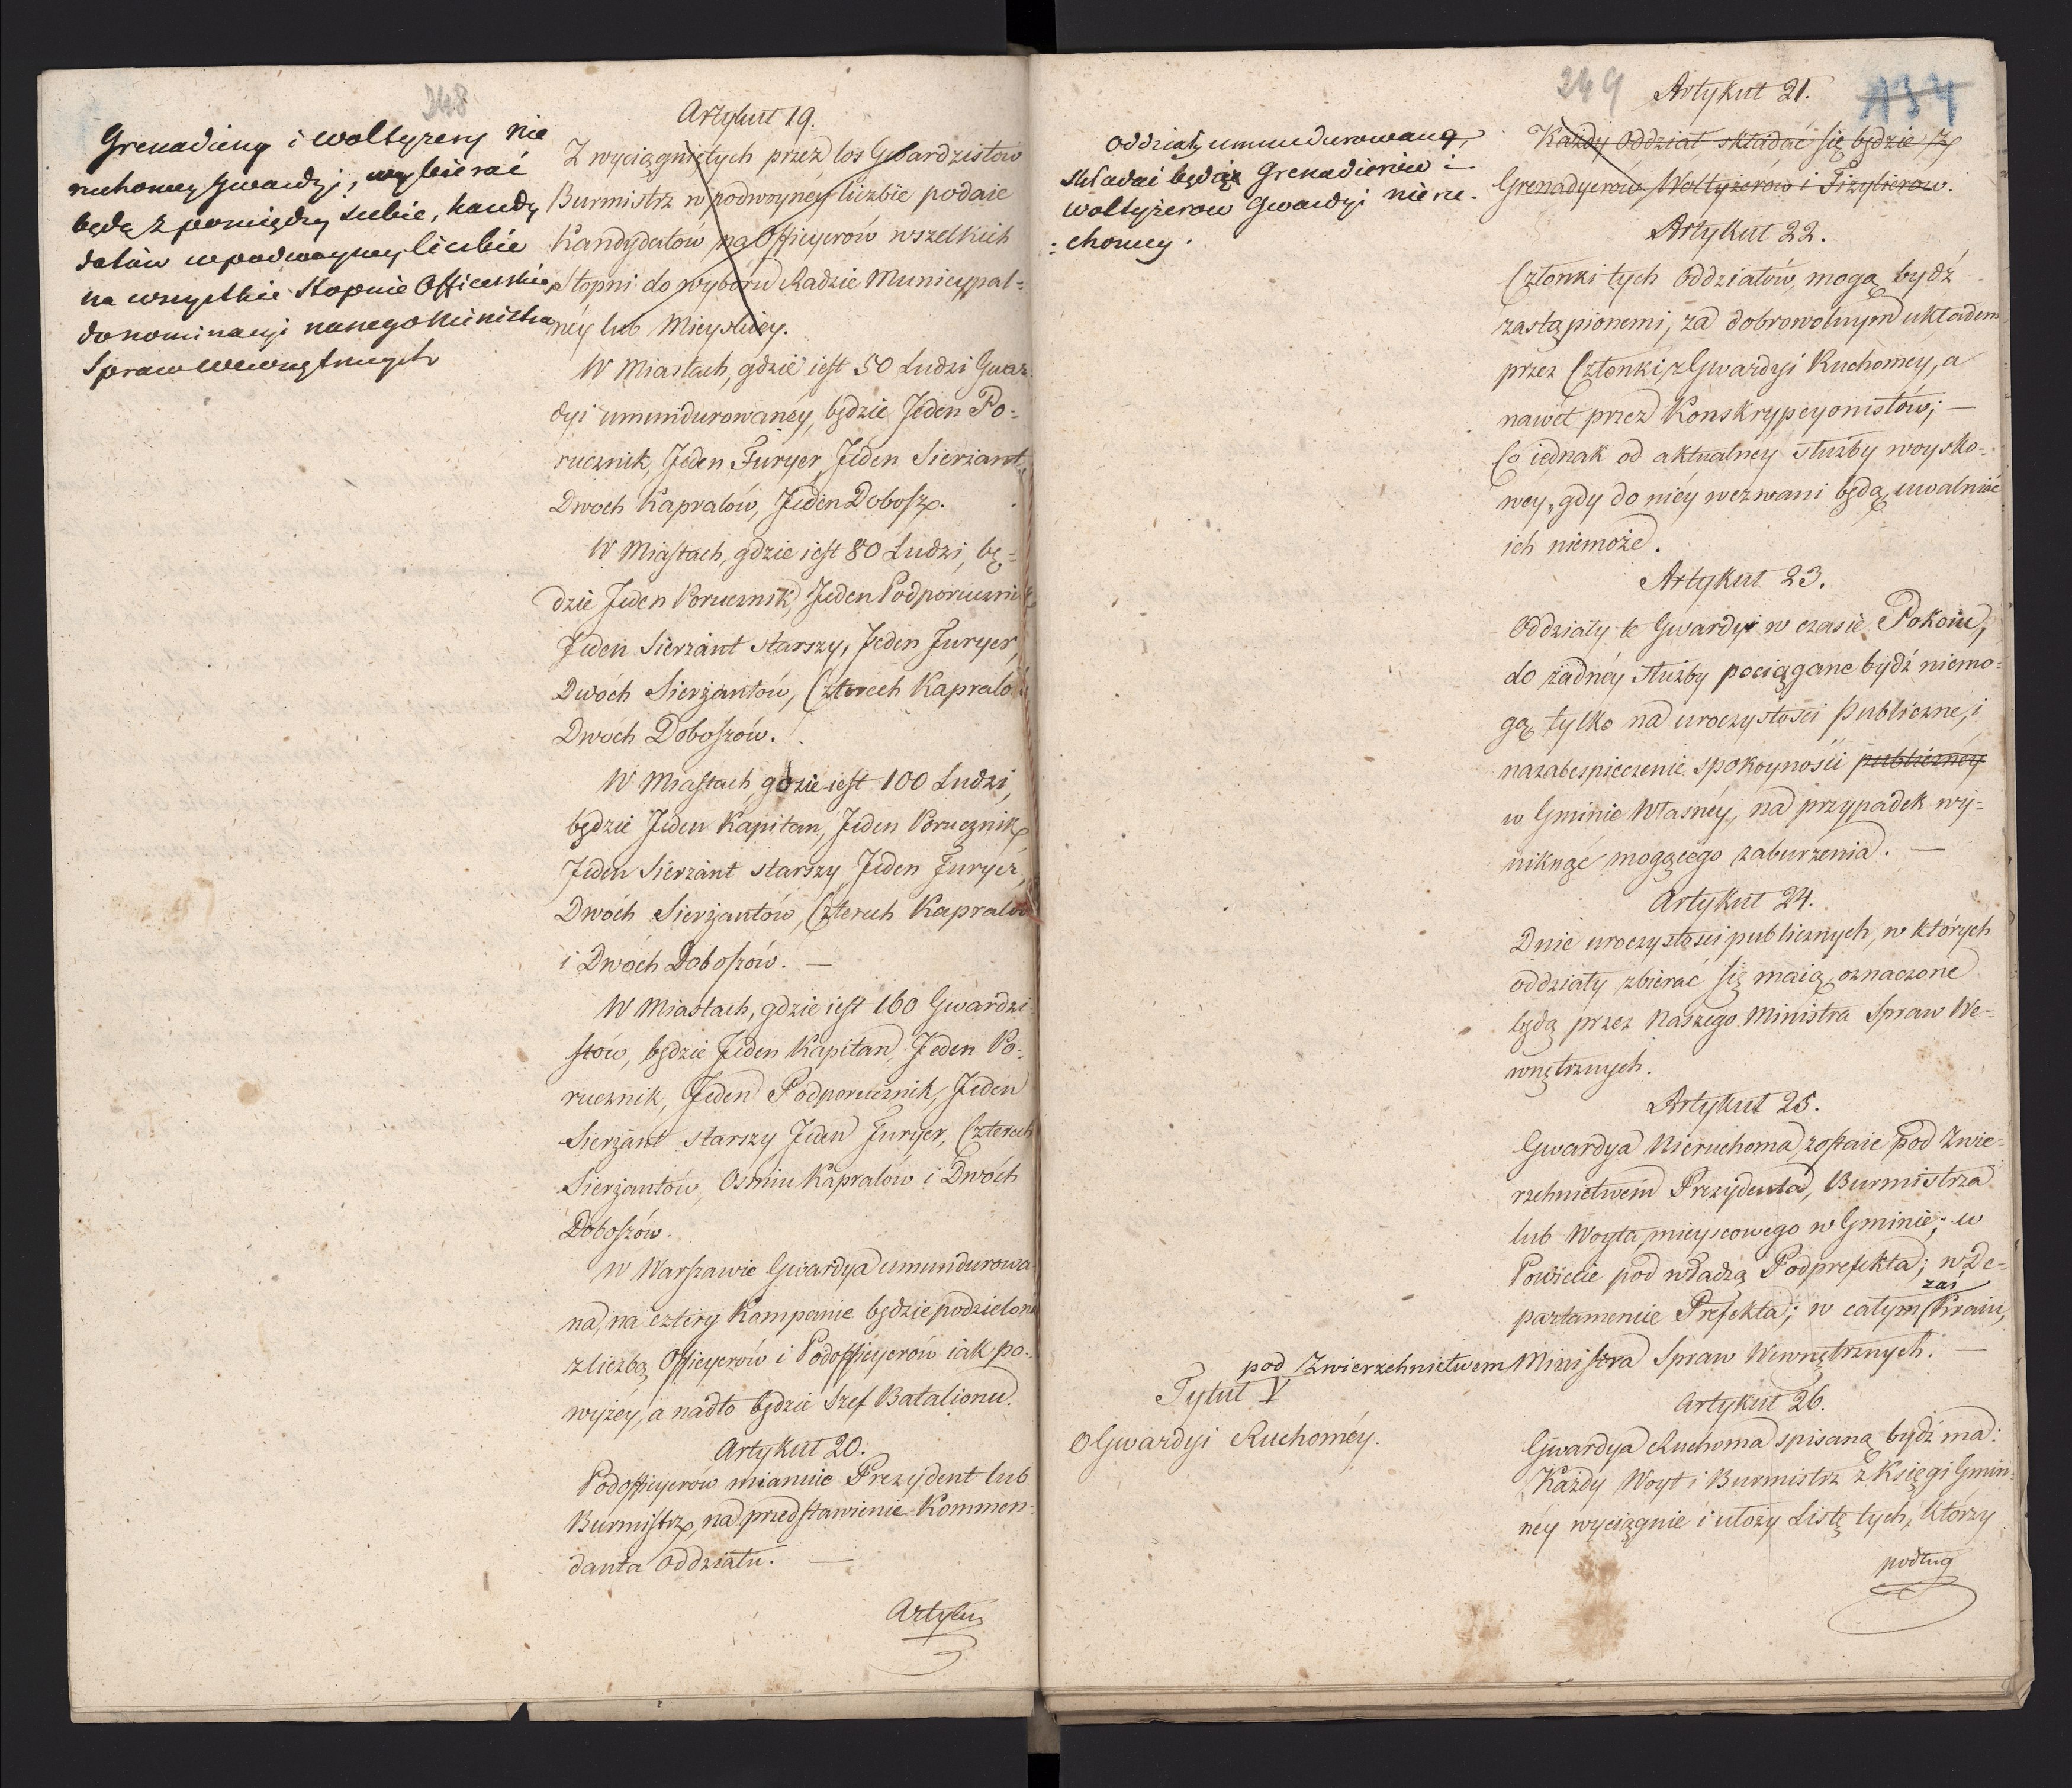 248
Grenadiery i woltyżery nie
ruchomey Gwardyi, wybierać
będą z pomiędzy siebie, kandy
datów w podwoyney liczbie
na wszystkie Stopnie Officerskie
do nominacyi naszego Ministra
Spraw Wewnętrznych
Artykuł 19.
Z wyciągniętych przez los Gwardzistow
Burmistrz w podwoynéy liczbie podaie
Kandydatów na Officyerów wszelkich
Stopni do wyboru Radzie Municypal=
néy lub Mieyskiey.
W Miastach, gdzie iest 50 Ludzi Gwar=
dyi umundurowanéy, będzie Jeden Po=
rucznik, Jeden Furyer, Jeden Sierżant,
Dwoch Kapralów, Jeden Dobosz.
W Miastach, gdzie iest 80 Ludzi, bę=
dzie Jeden Porucznik, Jeden Podporucznik
Jeden Sierżant starszy, Jeden Furyer,
Dwóch Sierżantów, Czterech Kapralów
Dwoch Doboszów.
W Miastach, gdzie iest 100 Ludzi,
będzie Jeden Kapitan, Jeden Porucznik,
Jeden Sierżant starszy Jeden Furyer,
Dwóch Sierżantów, Czterech Kapralów
i Dwóch Doboszów. —
W Miastach, gdzie iest 160 Gwardzi=
stów, będzie Jeden Kapitan, Jeden Po=
rucznik, Jeden Podporucznik, Jeden
Sierżant starszy Jeden Furyer, Czterech
Sierżantów, Osmiu Kapralów i Dwóch
Doboszów.
W Warszawie Gwardya umundurowa=
na, na cztery Kompanie będzie podzielona
z liczbą Officyerów i Podofficyerów iak po=
wyżéy, a nadto będzie Szef Batalionu.
Artykuł 20.
Podofficyerów mianuie Prezydent lub
Burmistrz, na przedstawienie Kommen=
danta Oddziału. —
Artykuł
249
134
Oddziały umundurowane,
składać będą Grenadierów i
woltyżerow Gwardyi nieru=
:chomey.
Artykuł 21.
Każdy Oddział składać się będzie z
Grenadyerow, Woltyżerów i Fizylierow.
Artykuł 22.
Członki tych Oddziałów, mogą bydź
zastąpionemi, za dobrowolnym układem
przez Członki z Gwardyi Ruchoméy, a
nawet przez Konskrypcyonistów; —
Co iednak od aktualnéy służby woysko=
wey, gdy do niéy wezwani będą, uwalniać
ich niemoże.
Artykuł 23.
Oddziały te Gwardyi w czasie Pokoiu,
do żadnéy służby pociągane bydź niemo=
gą, tylko na uroczystości Publiczne, i
na zabespieczenie spokoynosci publicznéy
w Gminie Własnéy, na przypadek wy=
niknąć mogącego zaburzenia. —
Artykuł 24.
Dnie uroczystości publicznych, w których
oddziały zbierać się maią, oznaczone
będą przez Naszego Ministra Spraw We=
wnętrznych.
Artykuł 25.
Gwardya Nieruchoma, zostaie pod Zwie=
rzchnictwem Prezydenta, Burmistrza
lub Woyta mieyscowego w Gminie; w
Powiecie pod władzą Podprefekta; w De=
partamencie Prefekta; w całym zaś Kraiu,
pod Zwierzchnictwem Ministra Spraw Wewnętrznych. —
Tytuł V
O Gwardyi Ruchoméy.
Artykuł 26.
Gwardya Ruchoma spisaną bydź ma:
Każdy Woyt i Burmistrz z Księgi Gmin=
néy wyciągnie i ułoży Listę tych, którzy
podług